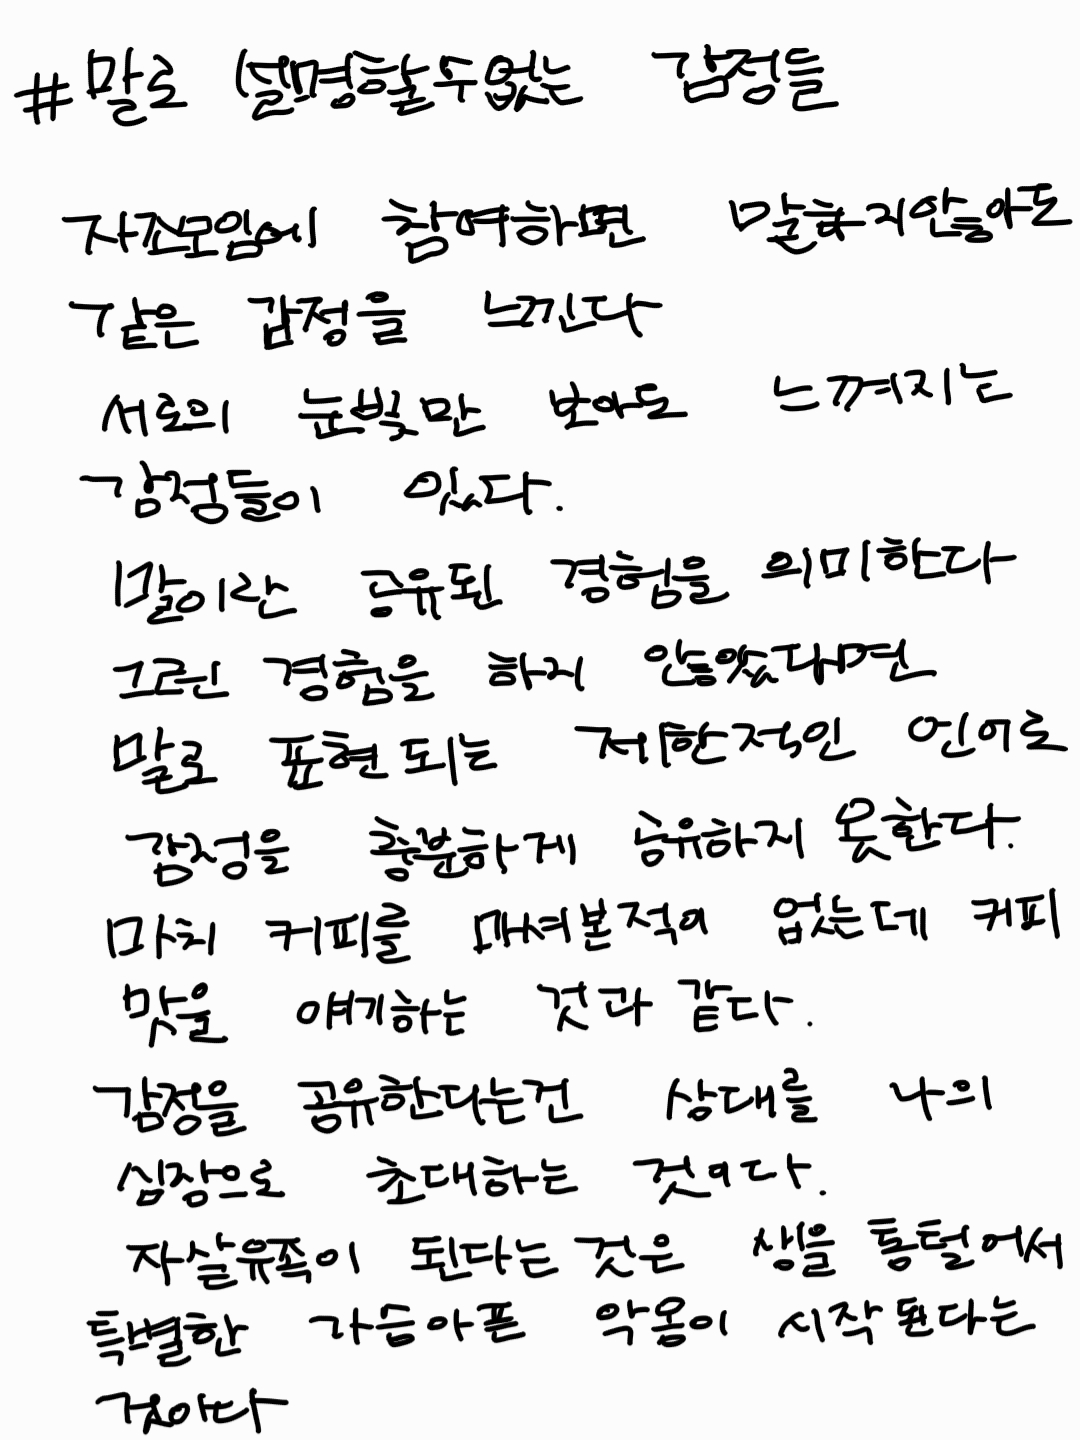 #말로 설명할수없는 감정들
자조모임에 참여하면 말하지안아도
같은 감정을 느낀다
서로의 눈빛만 보아도 느껴지는
감정들이 있다.
말이란 공유된 경험을 의미한다
그런 경험을 하지 안았다면
말로 표현되는 제한적인 언어로
감정을 충분하게 공유하지 못한다.
마치 커피를 마셔본적이 없는데 커피
맛을 얘기하는 것과 같다.
감정을 공유한다는건 상대를 나의
심장으로 초대하는 것이다.
자살유족이 된다는 것은 생을 통털어서
특별한 가슴아픈 악몽이 시작된다는
것이다